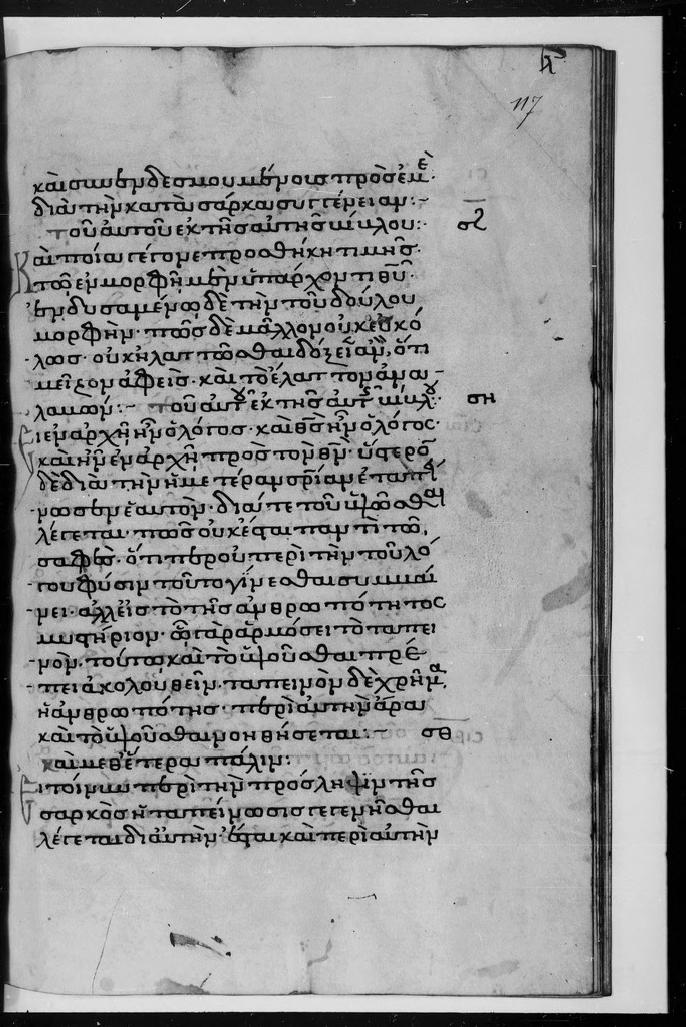 117
καὶ συνδεσμουμένοις πρὸς ἐμὲ
διὰ τὴν κατὰ σάρκα συγγένειαν:~
τοῦ αὐτοῦ ἐκ τῆς αὐτῆς βίβλου: σζ
Καὶ ποία γέγονε προσθήκη τιμῆς
τῶ ἐν μορφῆ μὲν ὑπάρχοντι θῦ·
ἐνδυσαμένω δὲ τὴν τοῦ δούλου
μορφήν· πῶς δὲ μᾶλλον οὐκ
οὐκ ἠλαττῶσθαι δόξειεν ἄν, ὅτι
μεῖζον ἀφεὶς καὶ τὸ ἔλαττον ἀνα-
λαβών:~ τοῦ αὐτοῦ ἐκ τῆς αὐτ βίβλ ση
Εἰ ἐν ἀρχῆ ἦν ὁ λόγος· καὶ θς ἦν ὁ λόγος·
καὶ ἦν ἐν ἀρχῆ πρὸς τὸν θν· ὕστερον
δὲ διὰ τὴν ἡμετέραν σρίαν ἐταπεί
νωσεν ἑαυτόν· διά τε τοῦ ὑψῶσθαι
λέγεται· πῶς οὐκ ἔσται παντί τω
σαφές· ὅτιπερ οὐ περὶ τὴν τοῦ λό
γου φύσιν τοῦτο γίνεσθαι συμβαί
νει· ἀλλ' εἰς τὸ τῆς ἀνθρωπότητος
μυστήριον· ᾧ γὰρ ἁρμόσει τὸ ταπει
νόν· τούτω καὶ τὸ ὑψοῦσθαι πρέ
πει ἀκολουθεῖν· ταπεινὸν δὲ χρῆμα
ἡ ἀνθρωπότης· περὶ αὐτὴν ἄρα
καὶ τὸ ὑψοῦσθαι νοηθήσεται:~ σθ
καὶ μεθ' ἕτερα πάλιν:
Εἰ τοίνυν περὶ τὴν πρόσληψιν τῆς
σαρκὸς ἡ ταπείνωσις γεγενῆσθαι
λέγεται δι' αὐτὴν· ἔσται καὶ περὶ αὐτὴν